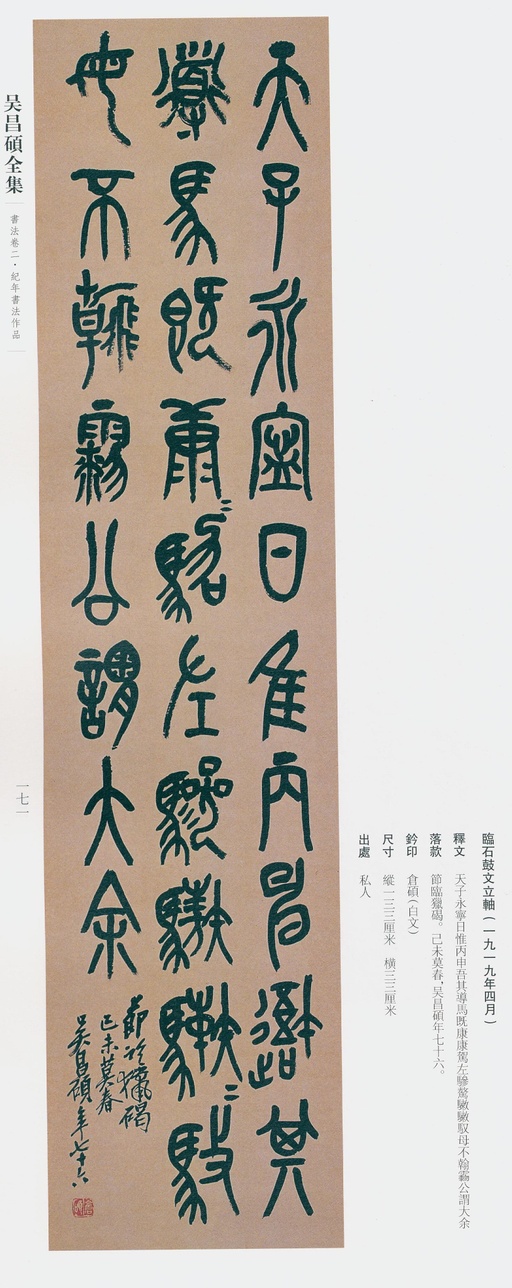 臨石鼓文立軸(一九一九年四月)
釋文 天子永寧日惟丙申吾其導馬既康康駕左驂馭母不翰霝公謂大余
落款 節臨獵碣。己未莫春,吴昌碩年七十六。
鈐印 倉碩(白文)
尺寸 縱一三三厘米 橫三三厘米
出處 私人
天子永寍日隹丙申其
導馬既康駕左驂馭
母不翰霝公謂大余
節臨獵碣
己未莫春
吴昌碩年七十六
吴昌碩全集
書法卷二·紀年書法作品
一七一